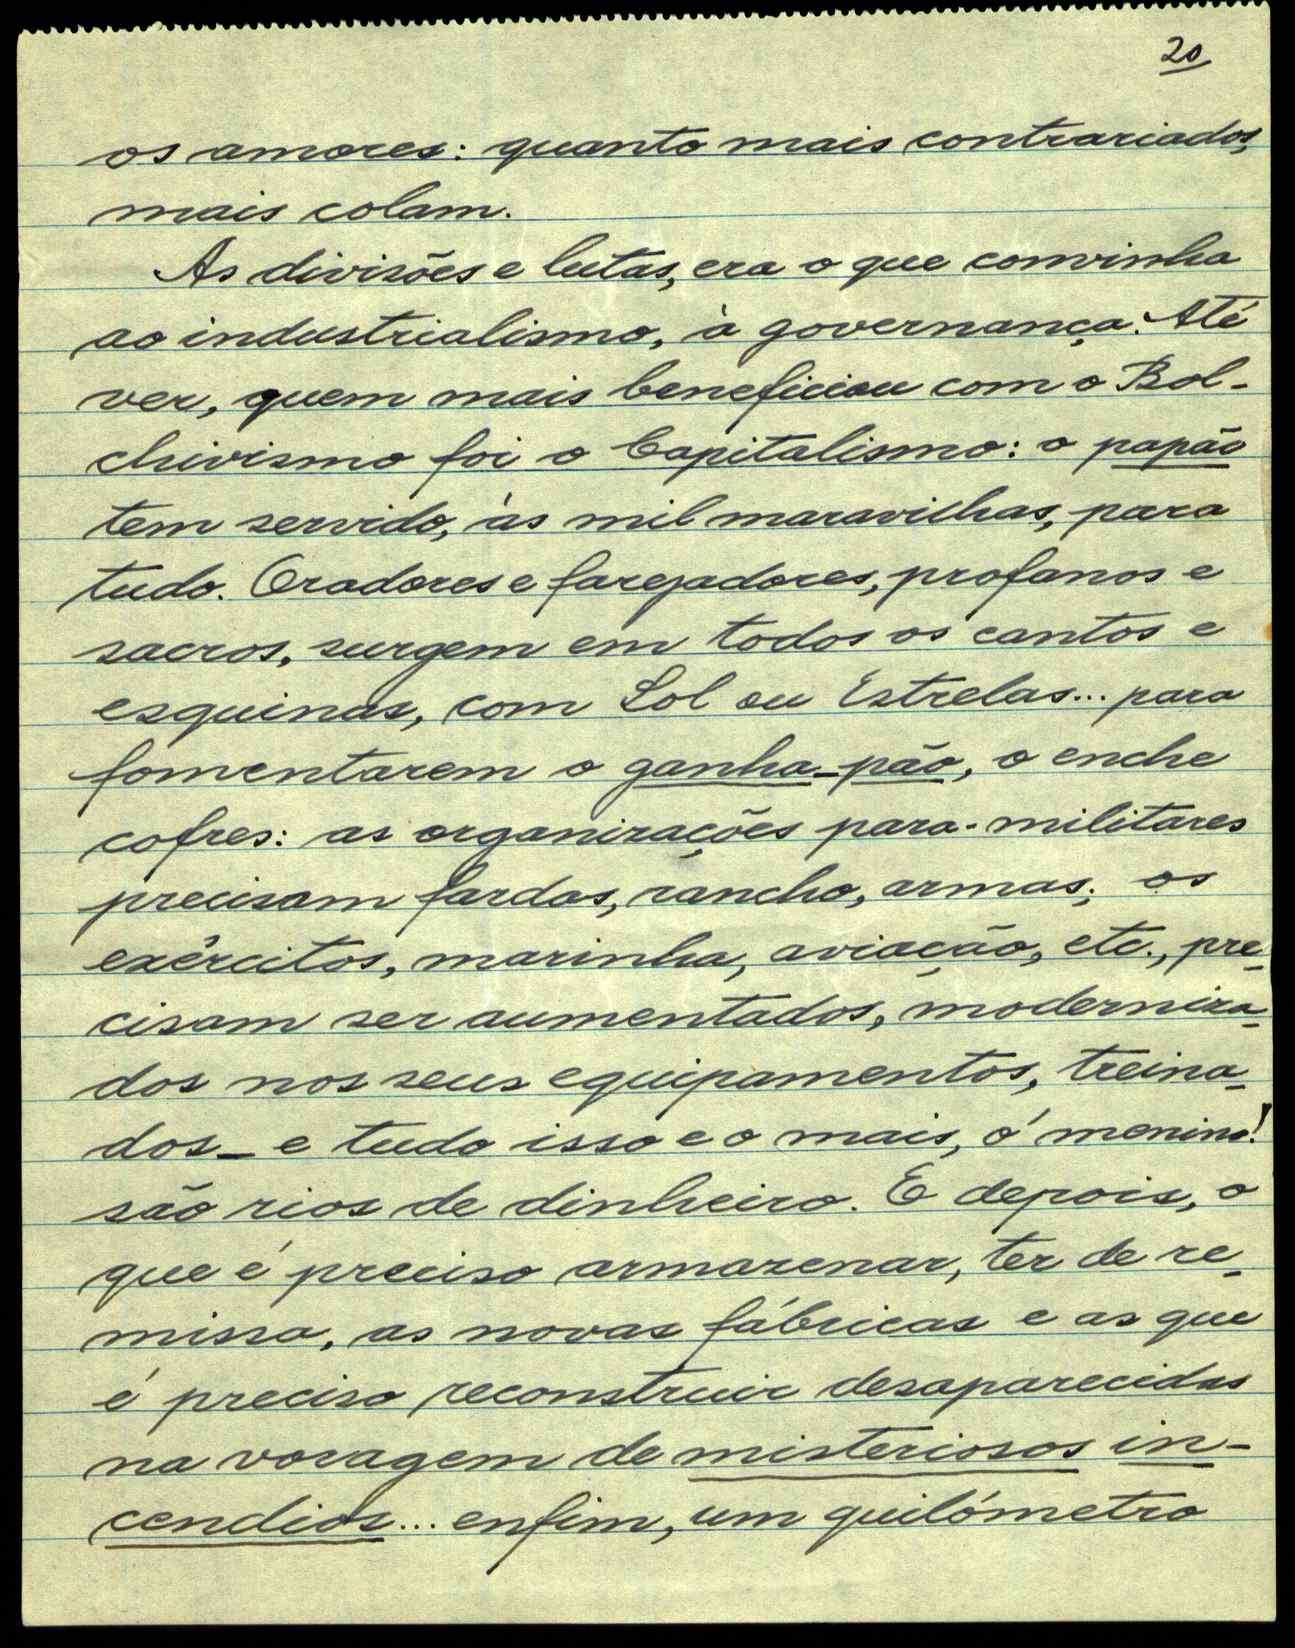 20
os amores: quanto mais contrariados,
mais colam.
As divisões e lutas, era o que convinha
ao industrialismo, à governança. Até
ver, quem mais beneficiou com o Bol-
chivismo foi o Capitalismo: o papão
tem servido, às mil maravilhas, para
tudo. Oradores e farejadores, profanos e
sacros, surgem em todos os cantos e
esquinas, com Sol ou Estrelas... para
fomentarem o ganha-pão, o enche
cofres: as organizações para-militares
precisam fardas, rancho, armas; os
exércitos, marinha, aviação, etc., pre-
cisam ser aumentados, moderniza-
dos nos seus equipamentos, treina-
dos - e tudo isso e o mais, ó menino!
são rios de dinheiro. E depois, o
que é preciso armazenar, ter de re-
missa, as novas fábricas e as que
é preciso reconstruir desaparecidas
na voragem de misteriosos in-
cendios... enfim, um quilómetro